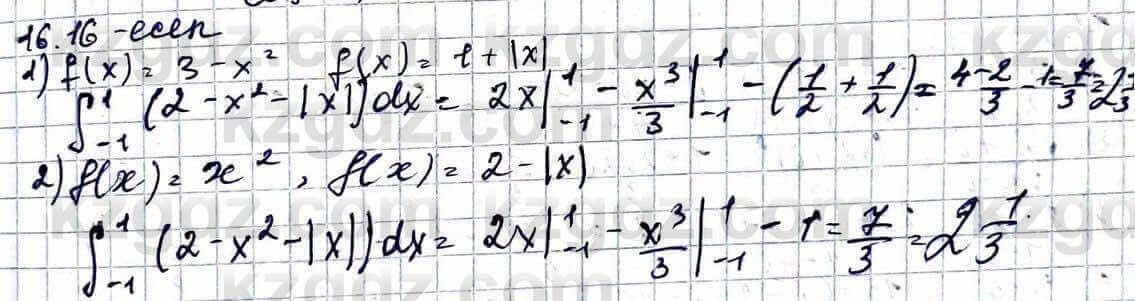 16.16 -есеп
1) f(x) = 3 - x² f(x) = 1 + |x|
∫₋₁¹ (2 - x² - |x|) dx = 2x|₋₁¹ - x³/3|₋₁¹ - (1/2 + 1/2) = 4 - 2/3 - 1 = 7/3 = 2 1/3
2) f(x) = x², f(x) = 2 - |x|
∫₋₁¹ (2 - x² - |x|) dx = 2x|₋₁¹ - x³/3|₋₁¹ - 1 = 7/3 = 2 1/3